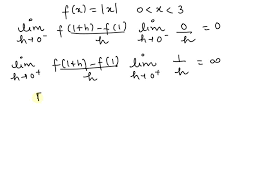 f(x) = |x| 0 < x < 3
lim h→0⁻ f(1+h) - f(1) / h lim h→0⁻ 0/h = 0
lim h→0⁺ f(1+h) - f(1) / h lim h→0⁺ 1/h = ∞